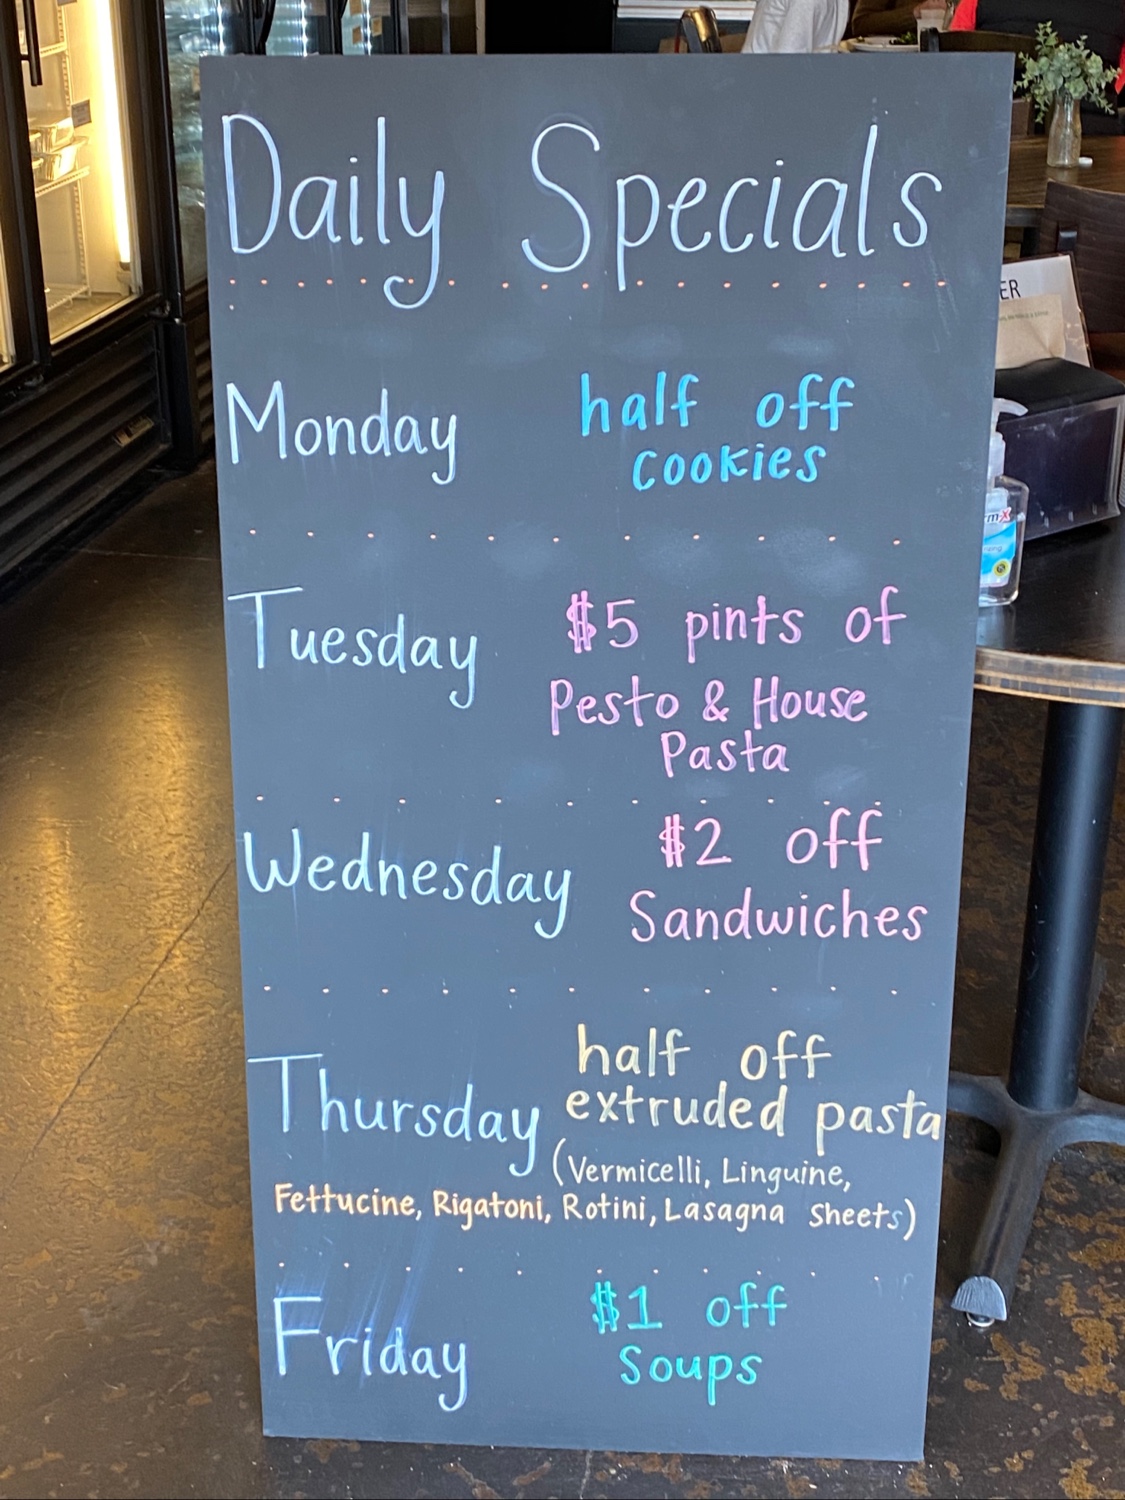 Daily Specials
Monday
half off
cookies
Tuesday
$5 pints of
Pesto & House
Pasta
Wednesday
$2 off
Sandwiches
Thursday
half off
extruded pasta
(Vermicelli, Linguine,
Fettucine, Rigatoni, Rotini, Lasagna sheets)
Friday
$1 off
Soups
ER
m-X